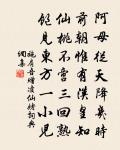 阿母從天降幾時
前朝惟有漢皇知
仙桃不啻三回熟
飽見東方一小兒
施肩吾贈凌仙姥詞典
網集